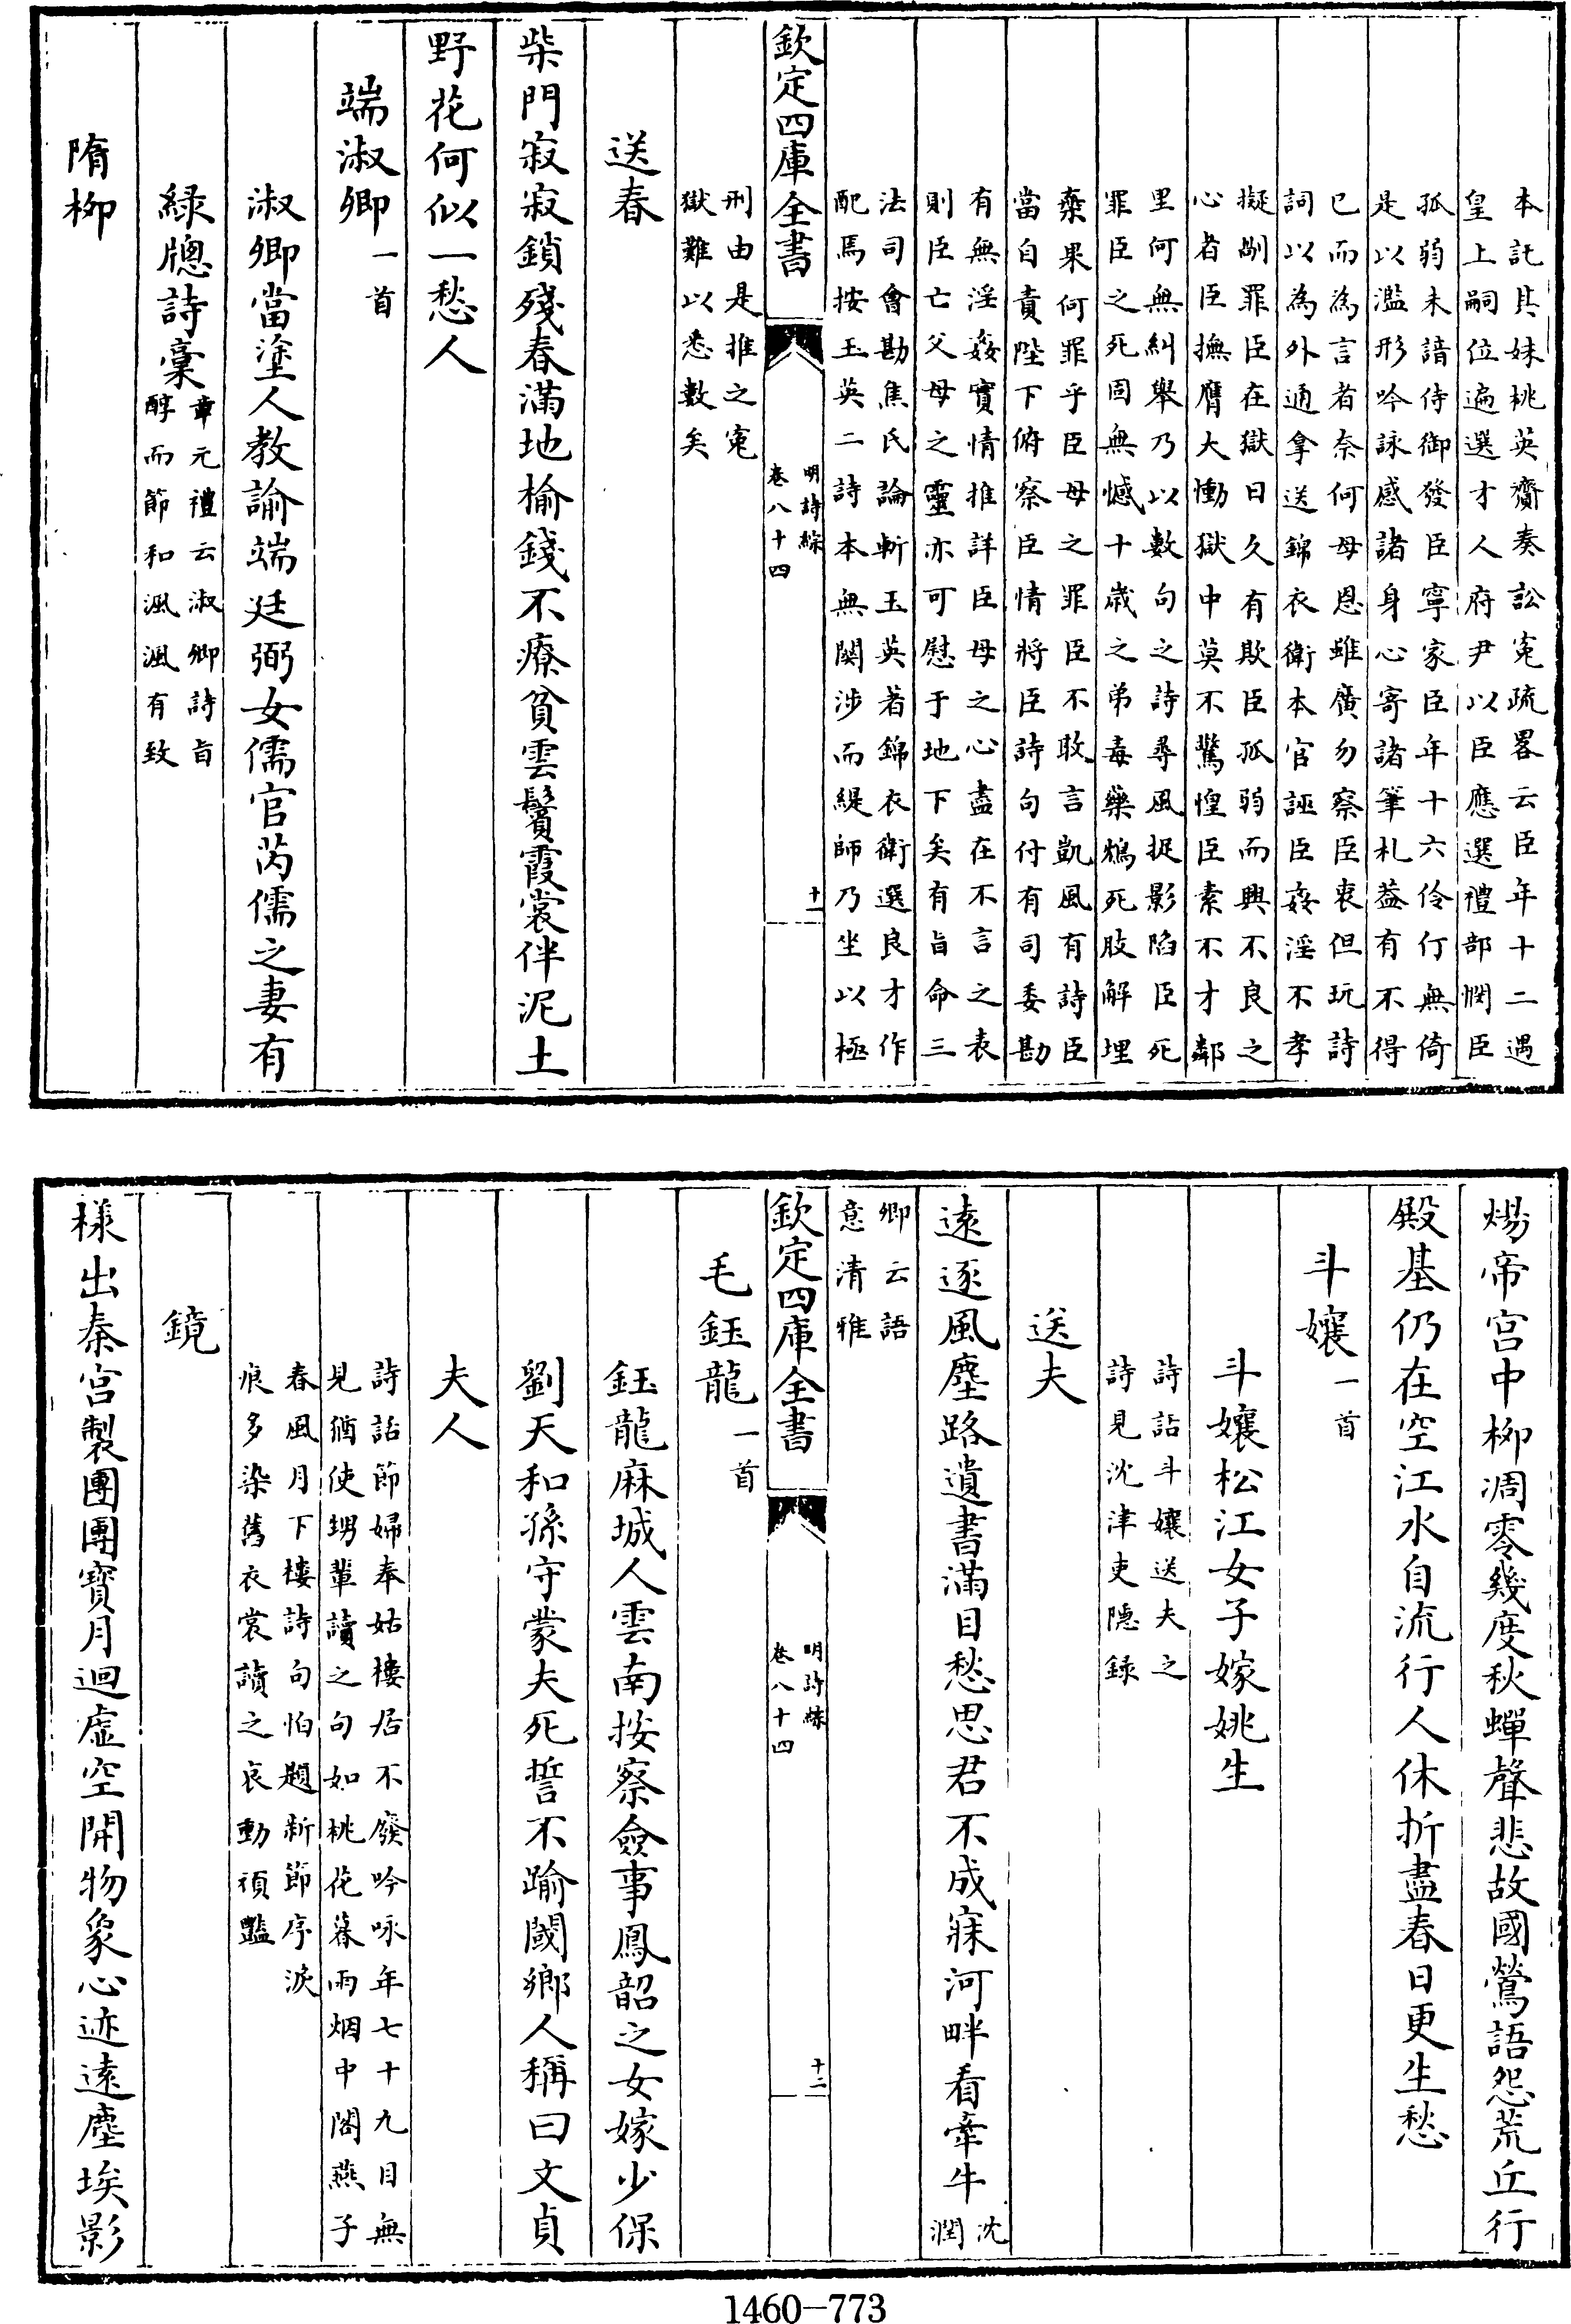 本託其妹桃英齎奏訟寃疏畧云臣年十二遇
皇上嗣位遍選才人府尹以臣應選禮部憫臣
孤弱未諳侍御發臣寧家臣年十六伶仃無倚
是以濫形吟詠感諸身心寄諸筆札葢有不得
已而為言者奈何母恩雖廣勿察臣衷但玩詩
詞以為外通拿送錦衣衛本官誣臣姦淫不孝
擬剮罪臣在獄日久有欺臣孤弱而興不良之
心者臣撫膺大慟獄中莫不驚惶臣素不才鄰
里何無糾舉乃以數句之詩尋風捉影陷臣死
罪臣之死固無憾十歳之弟毒藥鴆死肢解埋
棄果何罪乎臣母之罪臣不敢言凱風有詩臣
當自責陛下俯察臣情將臣詩句付有司委勘
有無淫姦實情推詳臣母之心盡在不言之表
則臣亡父母之靈亦可慰于地下矣有旨命三
法司會勘焦氏論斬玉英著錦衣衛選良才作
配馬按玉英二詩本無關涉而緹師乃坐以極
欽定四庫全書
明詩綜
卷八十四
十一
刑由是推之寃
獄難以悉數矣
送春
柴門寂寂鎖殘春滿地榆錢不療貧雲鬢霞裳伴泥土
野花何似一愁人
端淑卿一首
淑卿當塗人教諭端廷弼女儒官芮儒之妻有
綠牕詩稾章元禮云淑卿詩旨
醇而節和渢渢有致
隋柳
煬帝宮中柳凋零幾度秋蟬聲悲故國鶯語怨荒丘行
殿基仍在空江水自流行人休折盡春日更生愁
斗孃一首
斗孃松江女子嫁姚生
詩話斗孃送夫之
詩見沈津吏隠録
送夫
遠逐風塵路遺書滿目愁思君不成寐河畔看牽牛沈潤
卿云語
意清雅
欽定四庫全書
明詩綜
卷八十四
十二
毛鈺龍一首
鈺龍麻城人雲南按察僉事鳳韶之女嫁少保
劉天和孫守蒙夫死誓不踰閾鄉人稱曰文貞
夫人
詩話節婦奉姑樓居不廢吟咏年七十九目無
見猶使甥輩讀之句如桃花暮雨烟中閣燕子
春風月下樓詩句怕題新節序淚
痕多染舊衣裳讀之哀動頑豔
鏡
樣出秦宮製團團寳月迴虛空開物象心迹遠塵埃影
1460—773